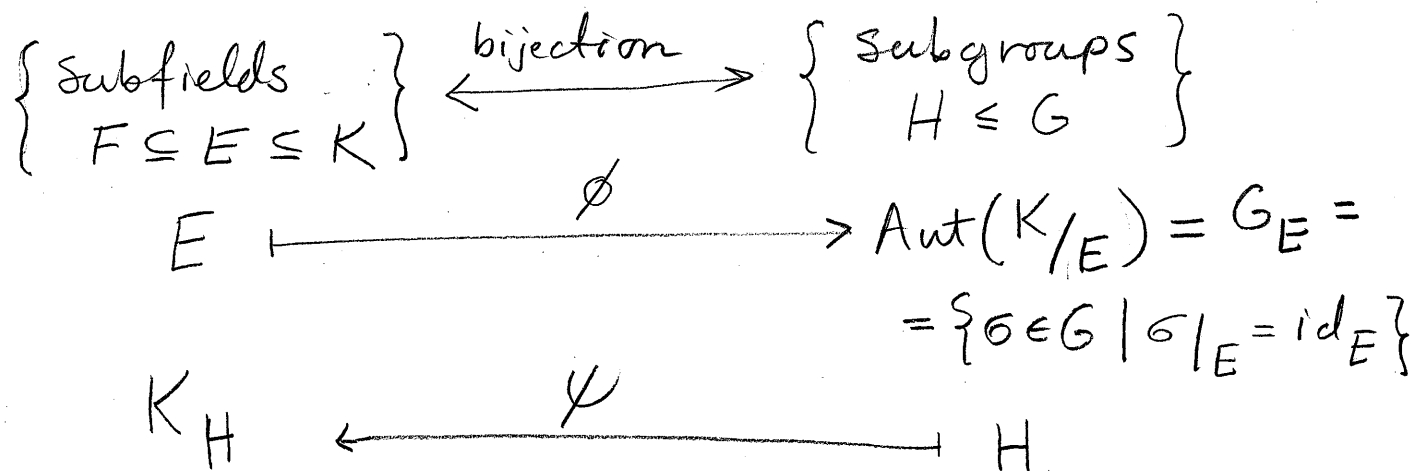 { subfields } bijection ⟷ { subgroups }
{ F ⊆ E ⊆ K } { H ≤ G }
E ϕ ⟼ Aut(K/E) = G_E =
= {σ ∈ G | σ|_E = id_E}
K_H ψ ⟻ H